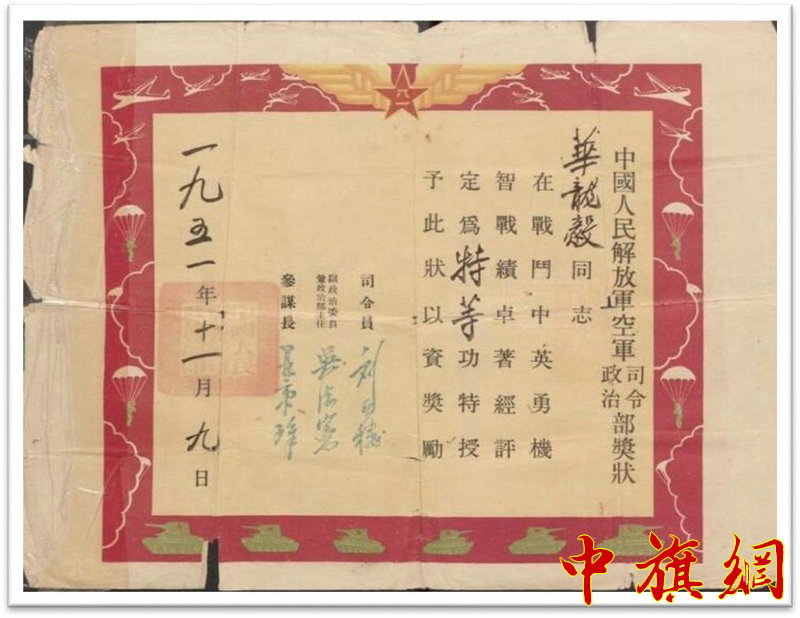 中國人民解放軍空軍司令政治部獎狀
華龍毅同志
在戰鬥中英勇機
智戰績卓著經評
定爲特等功特授
予此狀以資獎勵
司令員 刘亚楼
副政治委員兼政治部主任 吳法憲
參謀長 王秉璋
一九五一年十一月九日
八一
中旗網